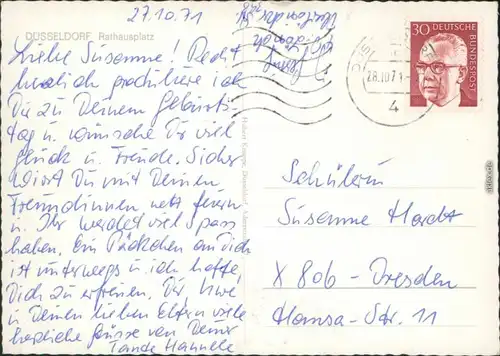 27.10.71
DÜSSELDORF Rathausplatz
Liebe Susanne! Recht
herzlich gratuliere ich
Dir zu Deinem Geburts-
tag u. wünsche Dir viel
Glück u. Freude. Sicher
wirst Du mit Deinen
Freundinnen nett feiern
u. Ihr werdet viel Spass
haben. Ein Päckchen an Dich
ist unterwegs u. ich hoffe,
Dich zu erfreuen. Dir, Uwe
u. Deinen lieben Eltern viele
herzliche Grüsse von Deiner
Tande Hannele
28.10.71
4
30 DEUTSCHE
BUNDESPOST
Schülerin
Susanne Hardt
X 806 - Dresden
Hansa-Str. 11